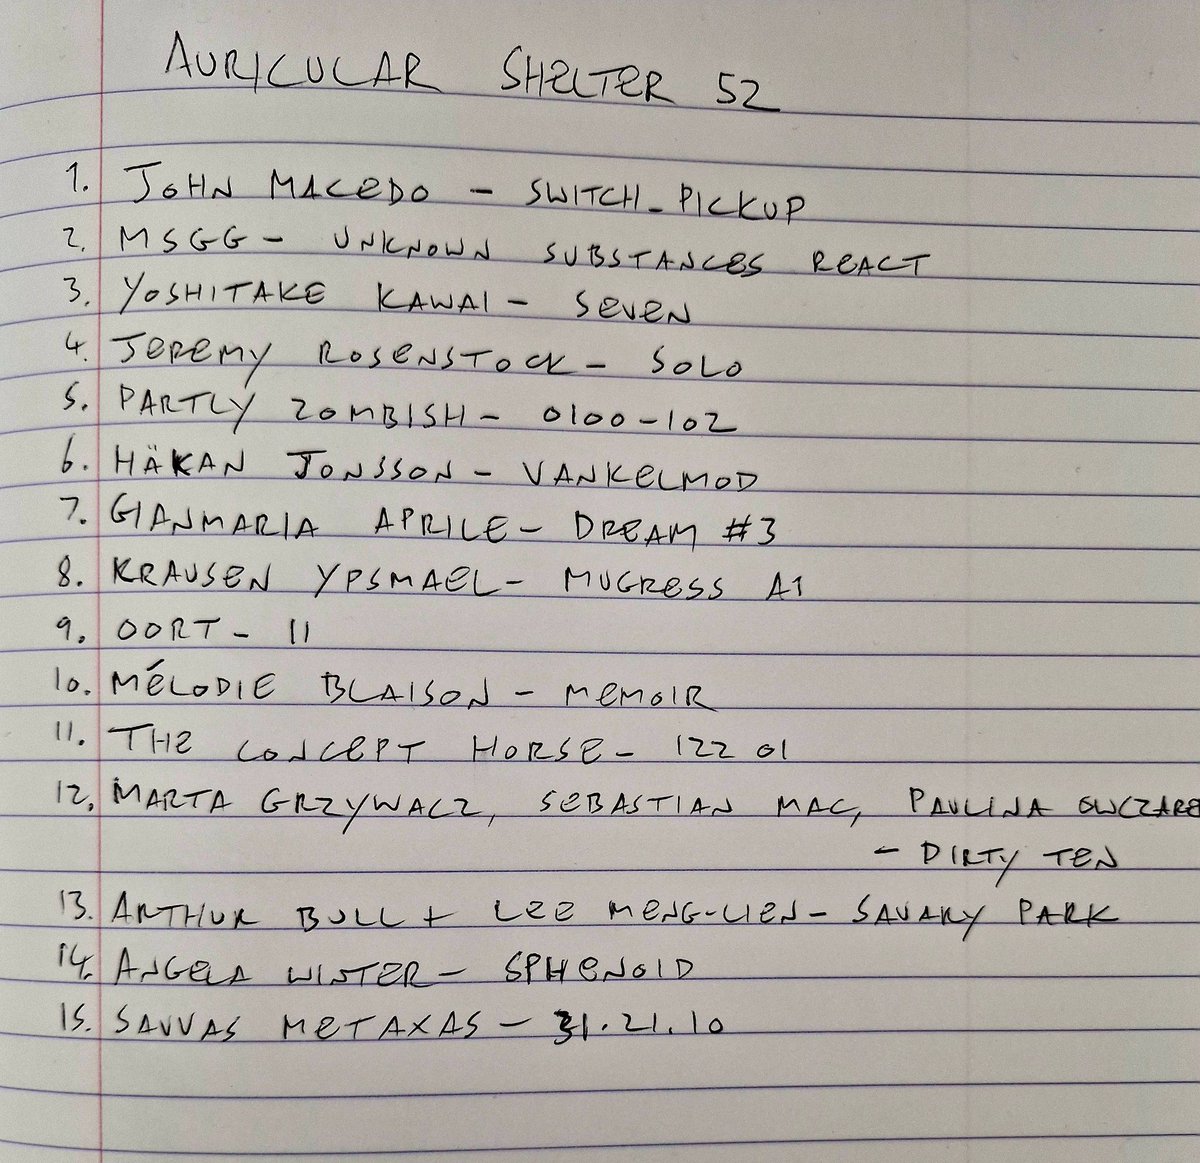 AURICULAR SHELTER 52
1. JOHN MACEDO - SWITCH_PICKUP
2. MSGG - UNKNOWN SUBSTANCES REACT
3. YOSHITAKE KAWAI - SEVEN
4. JEREMY ROSENSTOCK - SOLO
5. PARTLY ZOMBISH - 0100-102
6. HÄKAN JONSSON - VANKELMOD
7. GIANMARIA APRILE - DREAM #3
8. KRAUSEN YPSMAEL - MUGRESS A1
9. OORT - 11
10. MÉLODIE BLAISON - MEMOIR
11. THE CONCEPT HORSE - 122 01
12. MARTA GRZYWACZ, SEBASTIAN MAC, PAULINA OWCZARE
- DIRTY TEN
13. ARTHUR BULL + LEE MENG-LIEN - SAVARY PARK
14. ANGELA WINTER - SPHENOID
15. SAVVAS METAXAS - 31.21.10